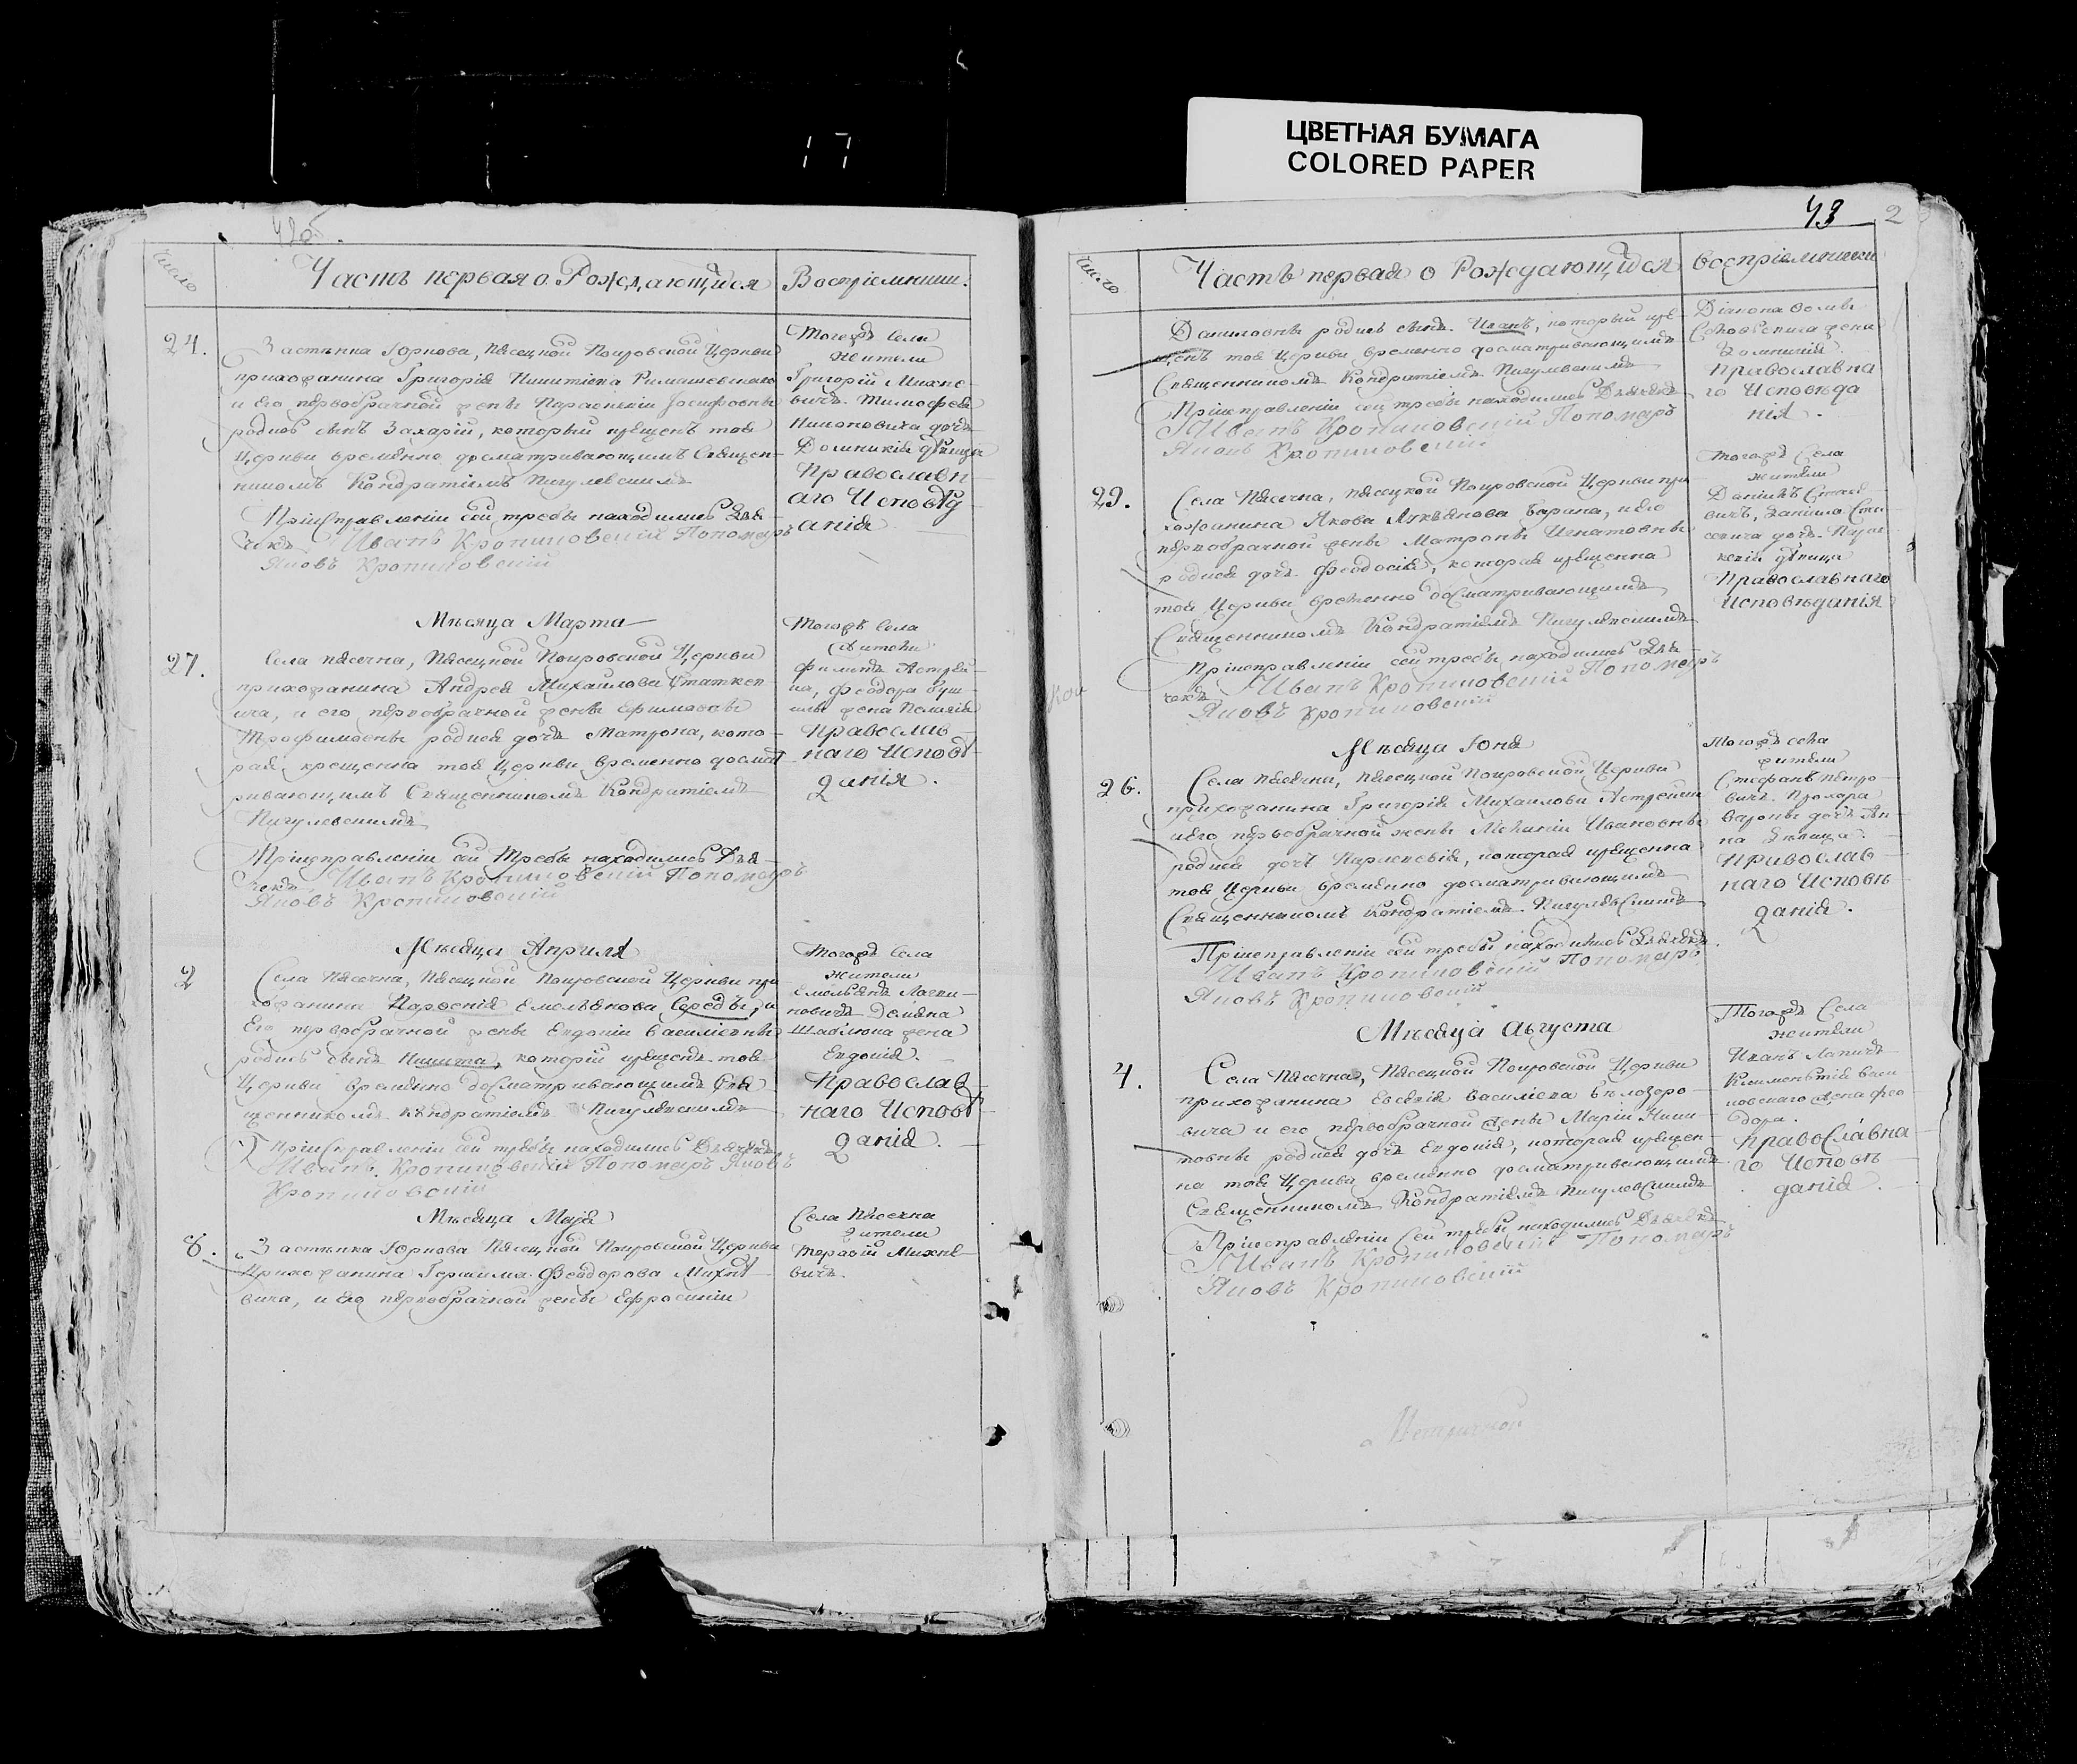 17
ЦВЕТНАЯ БУМАГА
COLORED PAPER
Число
Часть первая о Рождающихся
Воспріемники.
24.
Застѣнка Юркова, Пясецкой Покровской Церкви
прихожанина Григорія Никитіева
и его первобрачной жены Параскевіи Іосифовны
родися сынъ Захарій, который крещенъ тоя
Церкви временно досматривающимъ Священ-
никомъ Кондратіемъ
При исправленіи сей требы находились Дья-
чекъ Иванъ Кропиловскій Пономарь
Яковъ Кропиловскій
Тогожъ Села
жители
Григорій Михне-
вичъ. Тимофея
дочь
Домникія дѣвица
Православн
аго Исповѣд
анія
Мѣсяца Марта
27.
Села Пясечна, Пясецкой Покровской Церкви
прихожанина Андрея Михайлова
ича, и его первобрачной жены
Трофимовны родися дочь Матрона, кото-
рая крещенна тоя Церкви временно досмат
ривающимъ Священникомъ Кондратіемъ
При исправленіи сей Требы находились Дья-
чекъ Иванъ Кропиловскій Пономарь
Яковъ Кропиловскій
Тогожъ Села
жители
Филипъ Астрей-
ко, Феодора
жена Пелагія
Православ
наго Исповѣ
данія.
Мѣсяца Априля
2
Села Пясечна, Пясецкой Покровской Церкви при
хожанина Емельянова Середы, и
Его первобрачной жены Евдокіи Василіевны
родись сынъ Никита, который крещенъ тоя
Церкви временно досматривающимъ Свя
щенникомъ Кондратіемъ
При исправленіи сей требы находились Дьячекъ
Иванъ Кропиловскій Пономарь Яковъ
Кропиловскій
Тогожъ Села
жители
Емельянъ
новичъ Демяна
жена
Евдокія.
Православ
наго Исповѣ
данія.
Мѣсяца Маія
8.
Застѣнка Юркова Пясецкой Покровской Церкви
Прихожанина Феодорова Михне
вича, и его первобрачной жены Ефросиніи
Села Пясечна
жители
Михне
вичъ.
43
2
Число
Часть первая о Рождающихся
Воспріемники
Даниловны родись сынъ Иванъ, который кре-
щенъ тоя Церкви временно досматривающимъ
Священникомъ Кондратіемъ
При исправленіи сей требы находились Дьячекъ
Иванъ Кропиловскій Пономарь
Яковъ Кропиловскій
жена
Домникія.
Православна
го Исповѣда
нія.
29.
Села Пясечна, Пясецкой Покровской Церкви при
хожанина Якова Лукьянова и его
первобрачной жены Матроны Игнатовны
родися дочь Феодосія, которая крещенна
тоя Церкви временно досматривающимъ
Священникомъ Кондратіемъ
При исправленіи сей требы находились Дья-
чекъ Иванъ Кропиловскій Пономарь
Яковъ Кропиловскій
Тогожъ Села
жители
Даніилъ
вичъ, Данила
дочь
дѣвица
Православнаго
Исповѣданія
Мѣсяца Іюня
26.
Села Пясечна, Пясецкой Покровской Церкви
прихожанина Григорія Михаилова Астрейки
и его первобрачной жены Ивановны
родися дочь которая крещенна
тоя Церкви временно досматривающимъ
Священникомъ Кондратіемъ
При исправленіи сей требы находились Дьячекъ
Иванъ Кропиловскій Пономарь
Яковъ Кропиловскій
Тогожъ села
жители
Стефанъ Петро-
вичъ. Прохора
дочь Ан-
на дѣвица.
Православ
наго Исповѣ
данія.
Мѣсяца Августа
4.
Села Пясечна, Пясецкой Покровской Церкви
прихожанина Евсевія Василіева
вича и его первобрачной жены Маріи Ники-
товны родися дочь Евдокія, которая крещен-
на тоя Церкви временно досматривающимъ
Священникомъ Кондратіемъ
При исправленіи сей требы находились Дьячекъ
Иванъ Кропиловскій Пономарь
Яковъ Кропиловскій
Тогожъ Села
жители
Иванъ
жена Фео
дора.
Православна
го Исповѣ
данія.